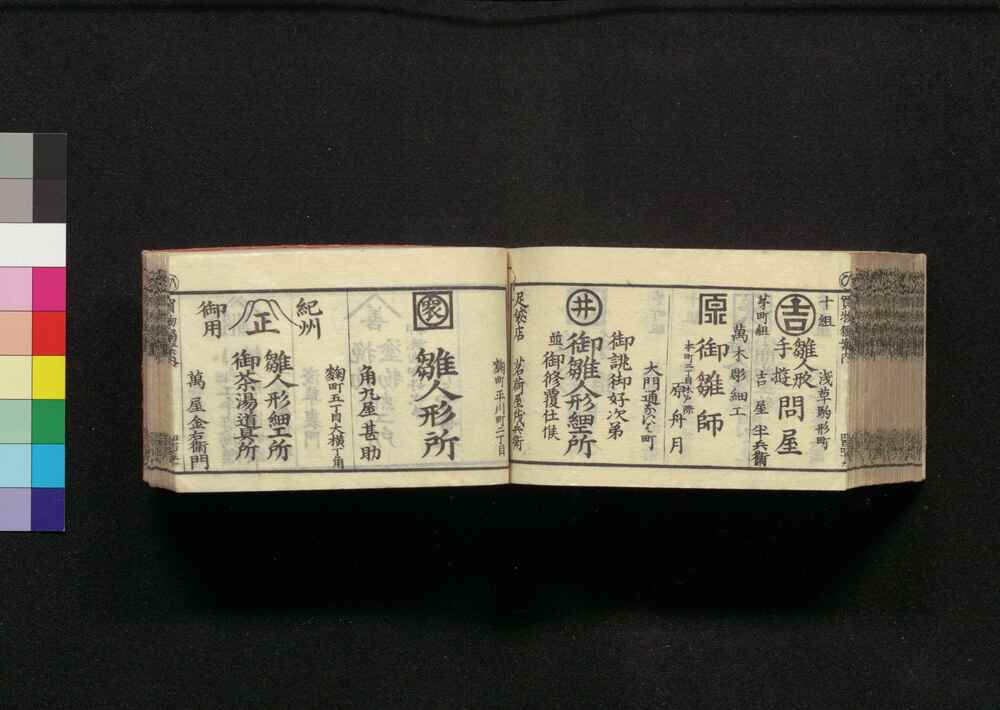 十組
浅草駒形町
吉
雛人形
手遊問屋
茅町組
吉屋半兵衛
萬木彫細工
原
御雛師
本町二丁目
原舟月
大門通
町
御誂御好次第
井
御雛人形細工所
並御修覆仕候
足袋店
茗荷屋茂兵衛
麹町平川町二丁目
雛人形所
角九屋甚助
麹町五丁目大横丁角
紀州
正
御用
雛人形細工所
御茶湯道具所
萬屋金右衛門